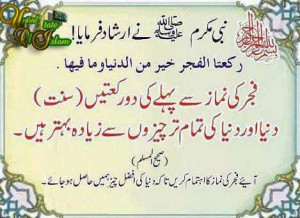 نبی مکرم ﷺ نے ارشاد فرمایا!
رکعتا الفجر خیر من الدنیا وما فیھا .
فجر کی نماز سے پہلے کی دو رکعتیں (سنت)
دنیا اور دنیا کی تمام تر چیزوں سے زیادہ بہتر ہیں۔
(صحیح المسلم)
آیئے فجر کی نماز کا اہتمام کریں تاکہ دنیا کی افضل چیز ہمیں حاصل ہو جائے۔